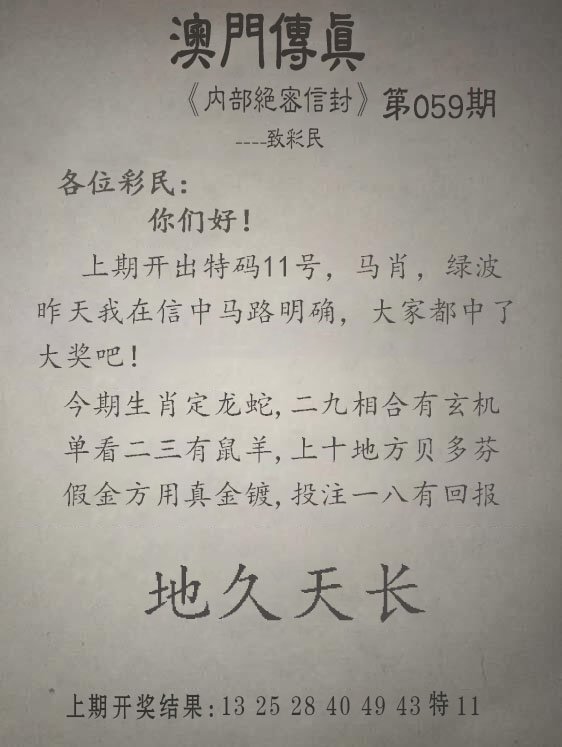 澳門傳眞
《内部絕密信封》第059期
----致彩民
各位彩民:
你们好!
上期开出特码11号，马肖，绿波
昨天我在信中马路明确，大家都中了
大奖吧!
今期生肖定龙蛇,二九相合有玄机
单看二三有鼠羊,上十地方贝多芬
假金方用真金镀,投注一八有回报
地久天长
上期开奖结果:13 25 28 40 49 43 特 11